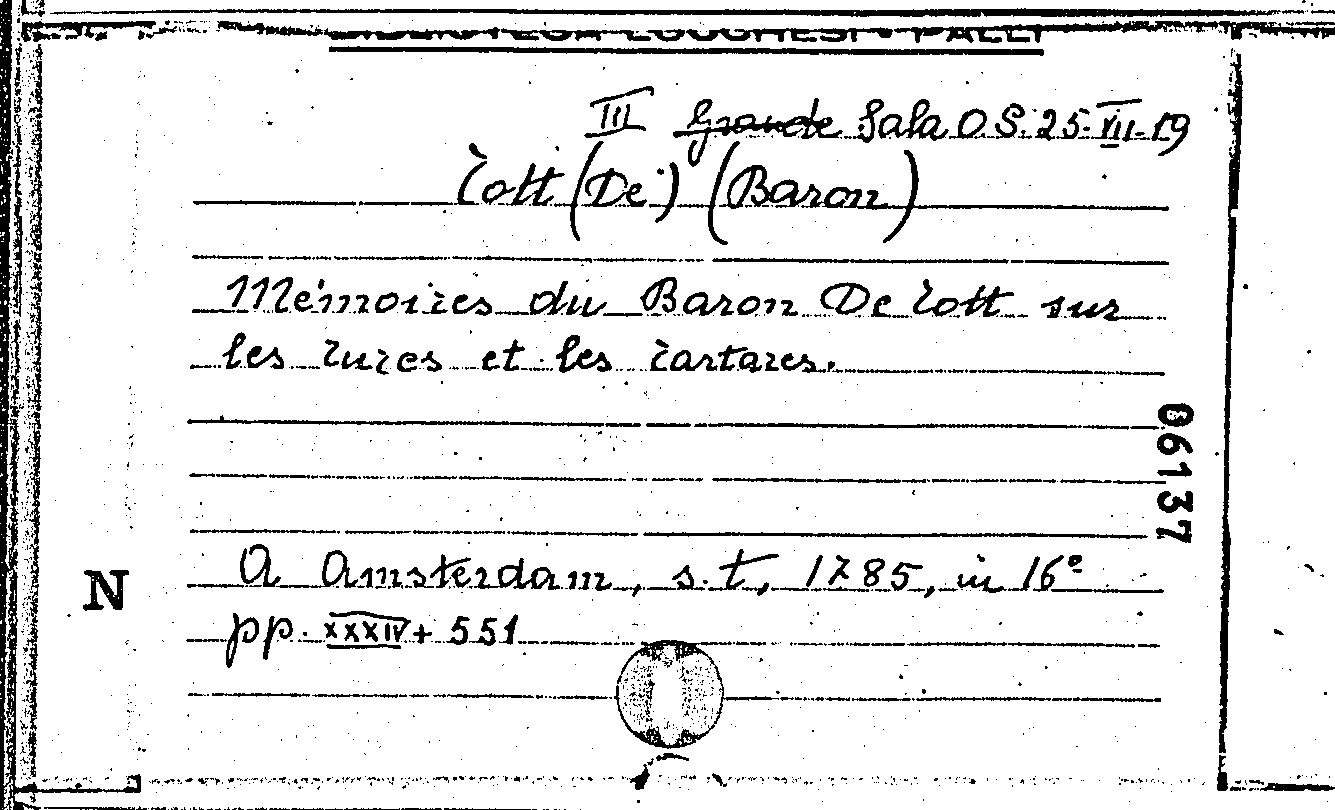 BIBLIOTECA LUCCHESI - PALLI
III Grande Sala O S. 25-VII-19
Tott (De) (Baron)
Mémoires du Baron De Tott sur
les Turcs et les Tartares.
06137
A Amsterdam, s.t, 1785, in 16º
N
pp. XXXIV + 551